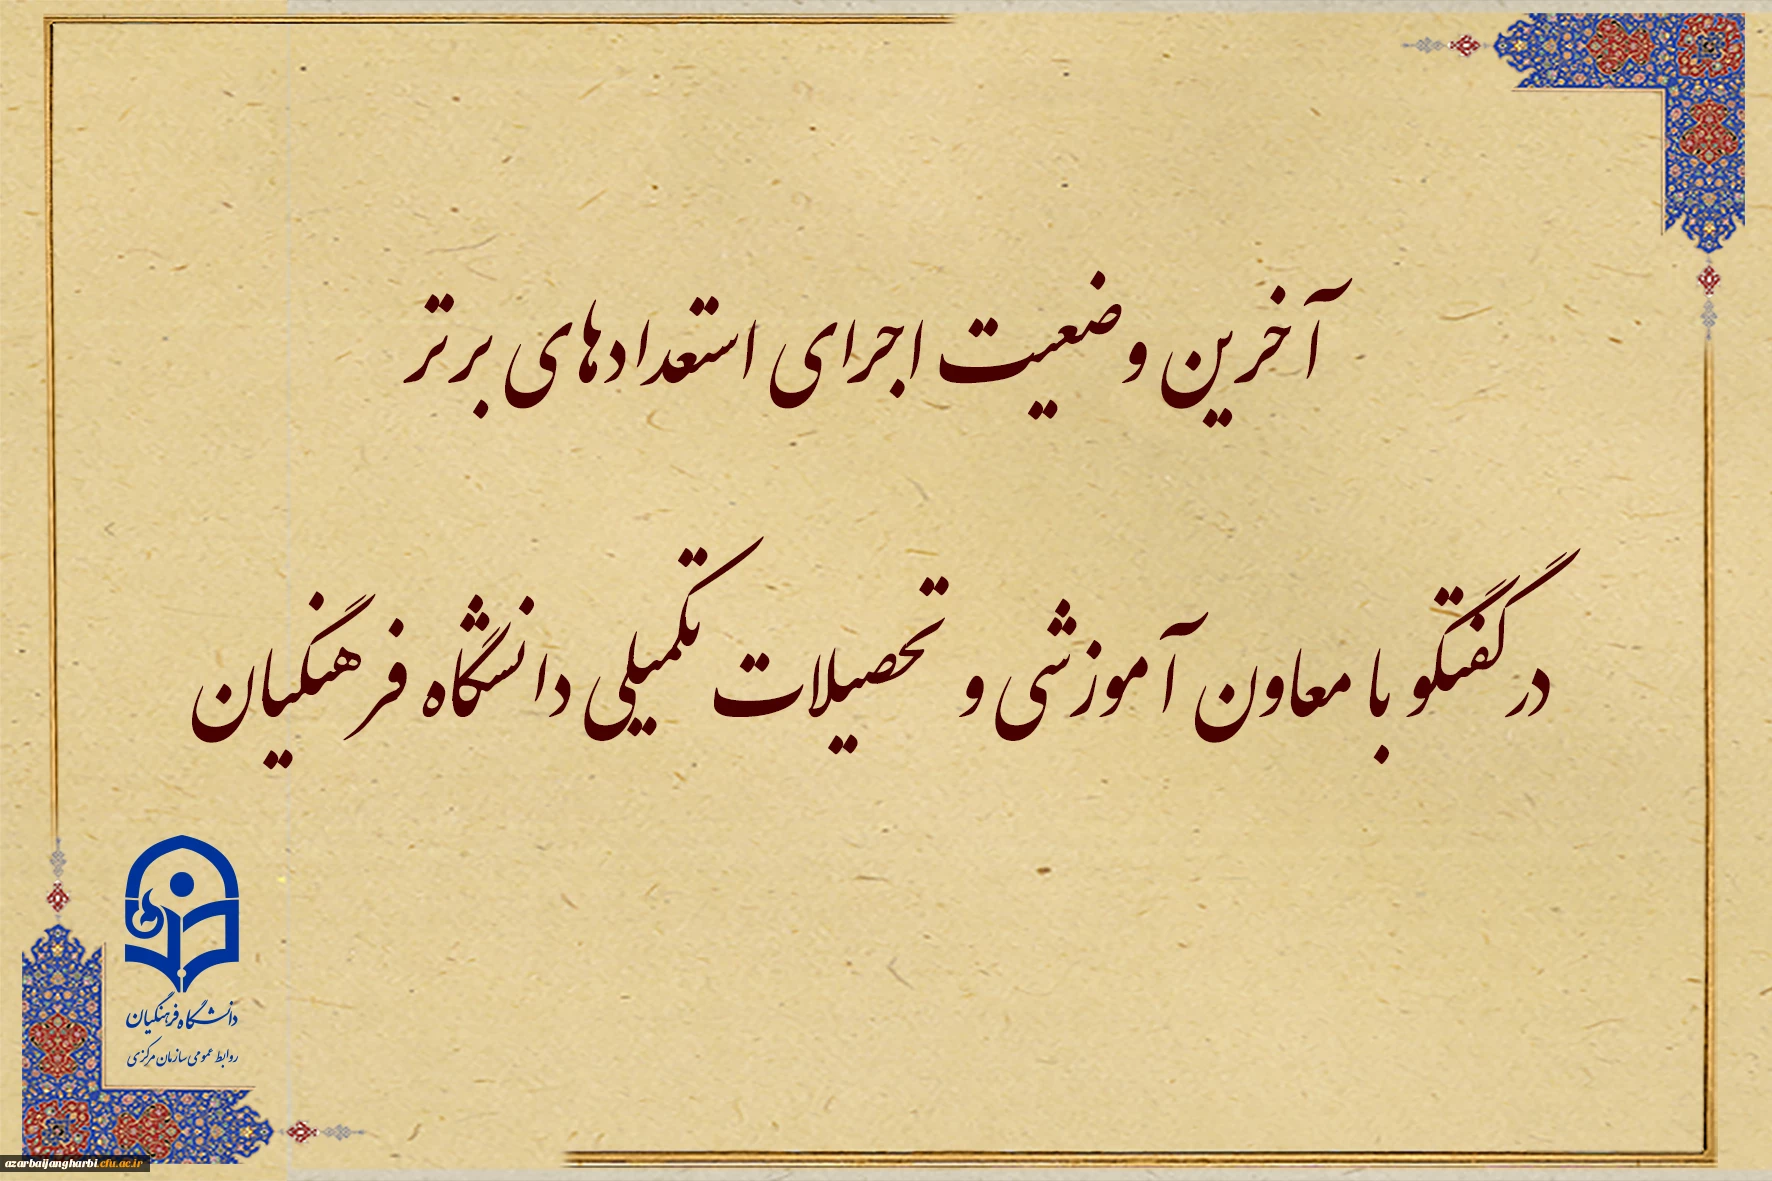 آخرین وضعیت اجرای استعدادهای برتر
در گفتگو با معاون آموزشی و تحصیلات تکمیلی دانشگاه فرهنگیان
دانشگاه فرهنگیان
روابط عمومی سازمان مرکزی
azarbaijangharbi.cfu.ac.ir